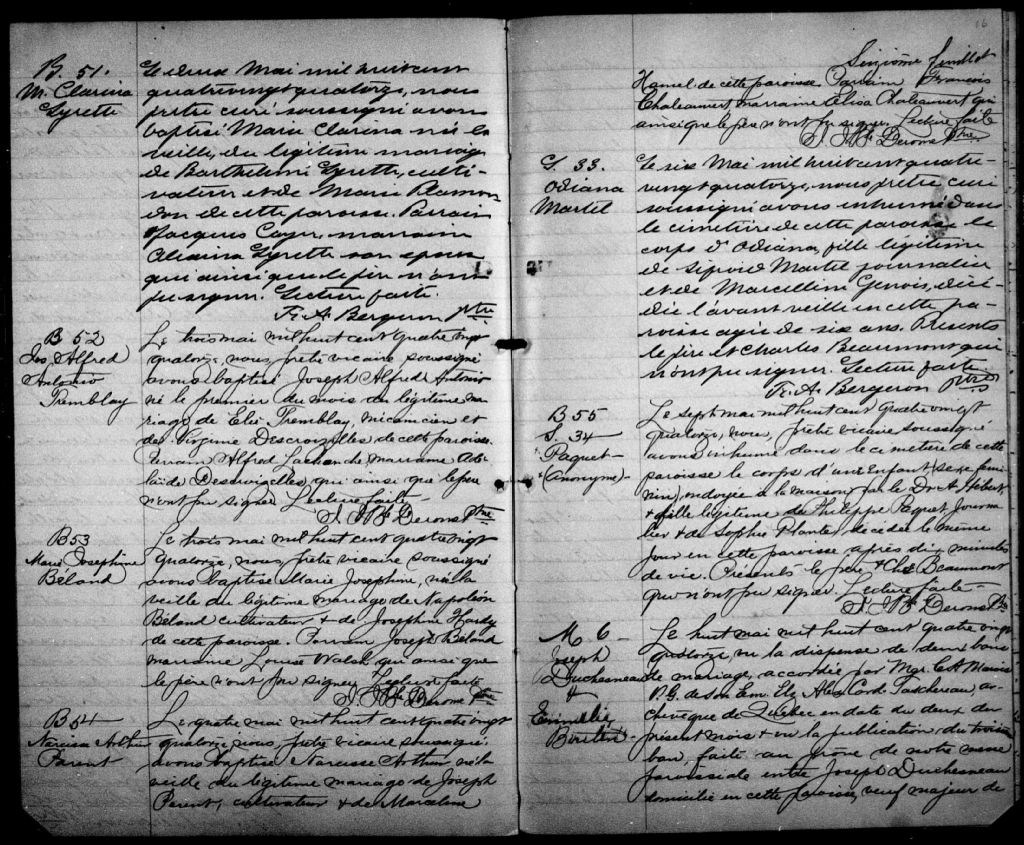 B. 51.
M. Clarina
Gyrette
Le deux Mai mil huit cent
quatrevingt quatorze, nous
prêtre curé soussigné avons
baptisé Marie Clarina née la
veille, du légitime mariage
de Barthelemi Gyrette, culti-
vateur et de Marie Plamon-
don de cette paroisse. Parrain
Jacques Cayer marraine
Gyrette son épouse
qui ainsi que le père n'ont
pu signer. Lecture faite.
F. A. Bergeron ptre
B 52
Jos. Alfred
Antonio
Tremblay
Le trois mai mil huit cent quatre vingt
quatorze, nous, prêtre vicaire soussigné
avons baptisé Joseph Alfred Antonio
né le premier du mois du légitime ma-
riage de Elie Tremblay, mécanicien et
de Virginie Descroizelles de cette paroisse.
Parrain Alfred Lachance, marraine Adé-
laïde Descroizelles, qui ainsi que le père
n'ont pu signer Lecture faite-
J. Bte Derome Ptre
B53
Marie Josephine
Béland
Le trois mai mil huit cent quatre vingt
quatorze, nous, prêtre vicaire soussigné
avons baptisé Marie Josephine, née la
veille du légitime mariage de Napoléon
Béland cultivateur & de Josephine Hardy
de cette paroisse. Parrain Joseph Béland
marraine Louise Walsh qui ainsi que
le père n'ont pu signer Lecture faite-
J. Bte Derome Ptre
B54
Narcisse Arthur
Parent
Le quatre mai mil huit cent quatre vingt
quatorze, nous, prêtre vicaire soussigné
avons baptisé Narcisse Arthur né la
veille du légitime mariage de Joseph
Parent, cultivateur & de
16
Seizième feuillet
Hamel de cette paroisse Parrain François
Chateauvert, marraine Elisa Chateauvert qui
ainsi que le père n'ont pu signer Lecture faite
J. Bte Derome Ptre
S. 33.
Odiana
Martel
Le six Mai mil huit cent quatre-
vingt quatorze, nous prêtre curé
soussigné avons inhumé dans
le cimetière de cette paroisse le
corps d'Odiana, fille légitime
de Martel journalier
et de Marcelline Genois, décé-
dée l'avant veille en cette pa-
roisse agée de six ans. Présents
le père et Charles Beaumont qui
n'ont pu signer. Lecture faite
F. A. Bergeron ptre
B 55
S. 34
Paquet
(Anonyme)
Le sept mai mil huit cent quatre vingt
quatorze, nous, prêtre vicaire soussigné
avons inhumé dans le cimetière de cette
paroisse le corps d'un Enfant (sexe fémi-
nin) ondoyée à la maison par le Dr A. Hébert
& fille légitime de Philippe Paquet Journa-
lier & de Sophie Plante, décédée le même
jour en cette paroisse après dix minutes
de vie. Présents le père & Chs Beaumont
qui n'ont pu signer. Lecture faite-
J. Bte Derome Ptre
M 6 -
Joseph
Duchesneau
&
Emélie
Le huit mai mil huit cent quatre vingt
quatorze, vu la dispense de deux bans
de mariage, accordée par Mgr C A Marois
V. G. de Son Em. Elz. Alex Card. Taschereau, ar-
chevêque de Québec en date du deux du
présent mois & vu la publication du troisième
ban, faite au prône de notre messe
paroissiale entre Joseph Duchesneau
domicilié en cette paroisse, veuf majeur de